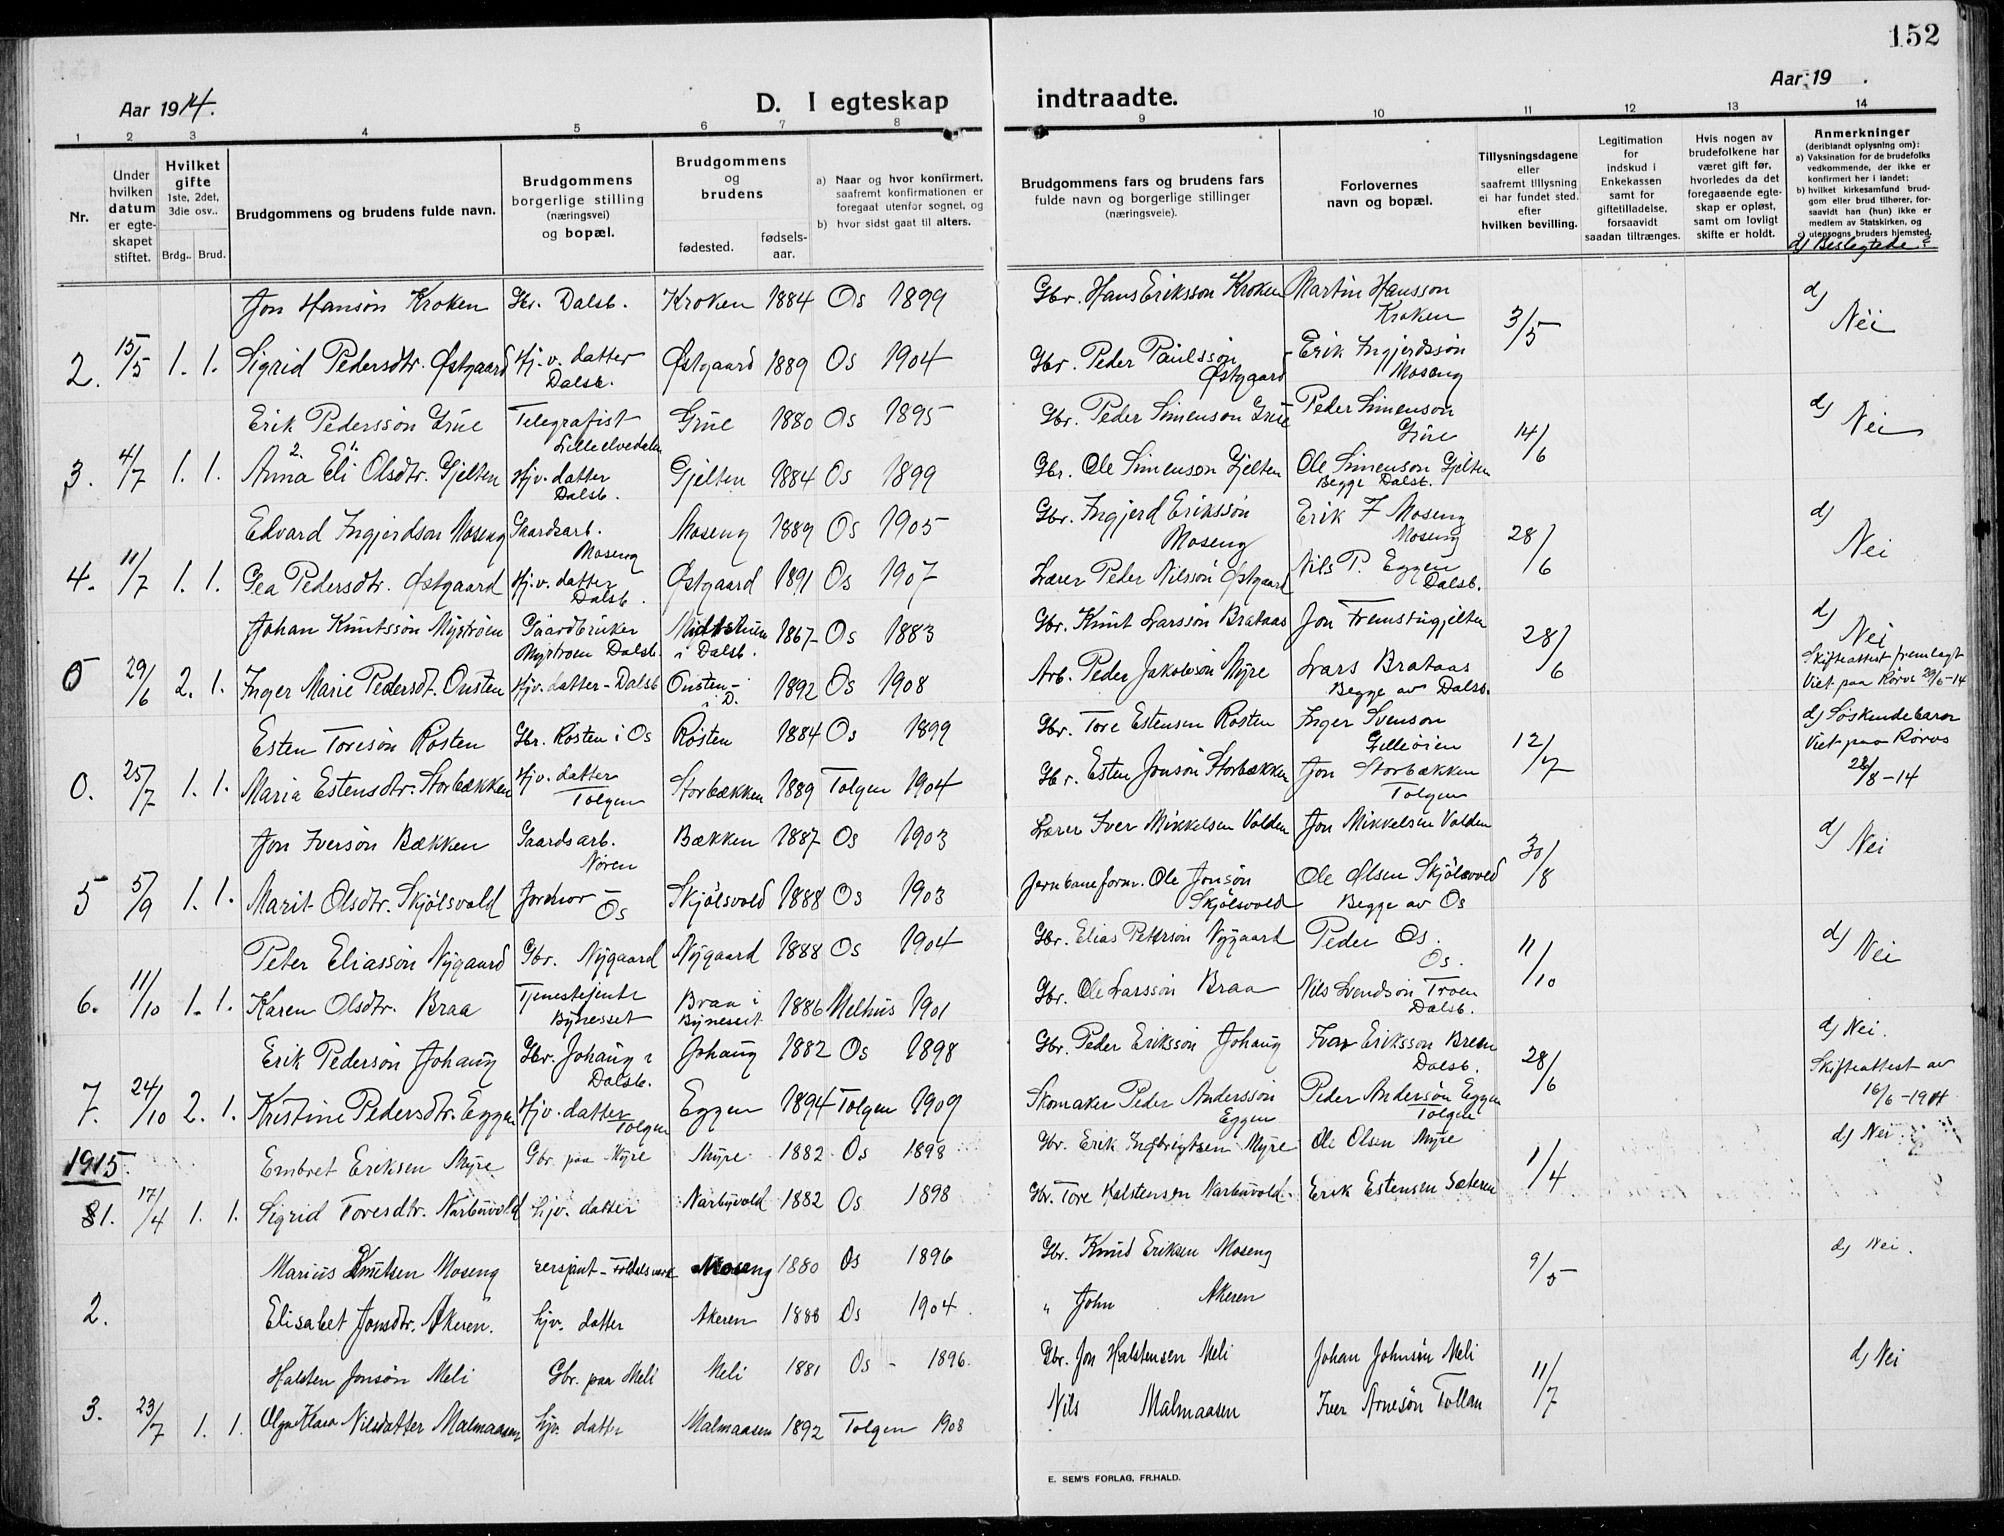 152
Aar 1914. D. I egteskap indtraadte. Aar 19 .
1 2 3 4 5 6 7 8 9 10 11 12 13 14
Nr.
Under hvilken datum er egteskapet stiftet.
Hvilket gifte 1ste, 2det, 3die osv..
Brdg.. Brud.
Brudgommens og brudens fulde navn.
Brudgommens borgerlige stilling (næringsvei) og bopæl.
Brudgommens og brudens
fødested. fødsels-aar.
a) Naar og hvor konfirmert, saafremt konfirmationen er foregaat utenfor sognet, og
b) hvor sidst gaat til alters.
Brudgommens fars og brudens fars fulde navn og borgerlige stillinger (næringsveie).
Forlovernes navn og bopæl.
Tillysningsdagene eller saafremt tillysning ei har fundet sted. efter hvilken bevilling.
Legitimation for indskud i Enkekassen samt for giftetilladelse, forsaavidt saadan tiltrænges.
Hvis nogen av brudefolkene har været gift før, hvorledes da det foregaaende egteskap er opløst, samt om lovligt skifte er holdt.
Anmerkninger
(deriblandt oplysning om):
a) Vaksination for de brudefolks vedkommende, der ikke er konfirmert her i landet;
b) hvilket kirkesamfund brudgom eller brud tilhører, forsaavidt han (hun) ikke er medlem av Statskirken, og
c) utensogns bruders hjemsted.
d) Beslegtede?
Jon Hansøn Kroken Gbr. Dalsb. Kroken 1884 Os 1899 Gbr. Hans Eriksson Kroken Martin Hansson Kroken 3/5 d) Nei
2. 15/5 1. 1. Sigrid Pedersdtr. Østgaard Hj. v. datter Dalsb. Østgaard 1889 Os 1904 Gbr. Peder Paulsson Østgaard Erik Ingjerdssøn Moseng
Erik Pederssøn Grue Telegrafist Lilleelvedalen Grue 1880 Os 1895 Gbr. Peder Simenson Grue Peder Simenson Grue 14/6 d) Nei
3. 4/7 1. 1. Anna Eli Olsdtr. Gjelten Hjv. datter Dalsb. Gjelten 1884 Os 1899 Gbr. Ole Simenson Gjelten Ole Simenson Gjelten Begge Dalsb.
Edvard Ingjerdson Moseng Gaardsarb. Moseng Moseng 1889 Os 1905 Gbr. Ingjerd Erikssøn Moseng Erik I Moseng Moseng 28/6 d) Nei
4. 11/7 1. 1. Gea Pedersdtr. Østgaard Hj. v. datter Dalsb. Østgaard 1891 Os 1907 Lærer Peder Nilssøn Østgaard Nils P. Eggen Dalsb.
Johan Knutssøn Myrtrøen Gaardbruker Myrtroen Dalsb. i Dalsb. 1867 Os 1883 Gbr. Knut Larssøn Brataas Jon Fremstugjelten 28/6 d) Nei
5 29/6 2. 1. Inger Marie Pedersdt. Ousten Hjv. datter - Dalsb Ousten - i D. 1892 Os 1908 Arb. Peder Jakobsøn Myre Lars Brataas Begge av Dalsb. Skifteattest fremlagt Viet paa Røros 29/6-14
Esten Toresøn Røsten Gbr. Røsten i Os Røsten 1884 Os 1899 Gbr. Tore Estensen Røsten Inger Svenson Gilleøien 12/7 d) Søskendebarn
0. 25/7 1. 1. Maria Estensdtr. Storbækken Hjv. datter Tolgen Storbækken 1889 Tolgen 1904 Gbr. Esten Jonsøn Storbækken Jon Storbækken Tolgen Viet paa Røros 28/8-14
Jon Iversøn Bækken Gaardsarb. Nøren Bækken 1887 Os 1903 Lærer Iver Mikkelsen Volden Jon Mikkelsen Volden 30/8 d) Nei
5 5/9 1. 1. Marit Olsdtr. Skjølsvold Jordmor Os Skjølsvold 1888 Os 1903 Jernbaneform. Ole Jonsøn Skjølsvold Ole Olsen Skjølsvold Begge av Os
Peter Eliassøn Nygaard Gbr. Nygaard Nygaard 1888 Os 1904 Gbr. Elias Petersøn Nygaard Peder Os. Os. 11/10 d) Nei
6. 11/10 1. 1. Karen Olsdtr. Braa Tjenestejente Bynesset Braa i Byneset 1886 Melhus 1901 Gbr. Ole Larssøn Braa Nils Svendsøn Troen Dalsb.
Erik Pedersøn Johaug Gbr. Johaug i Dalsb. Johaug 1882 Os 1898 Gbr. Peder Erikssøn Johaug Ivar Eriksson Breen Dalsb. 28/6 d) Nei.
7. 24/10 2. 1. Kristine Pedersdtr. Eggen Hjv. datter Tolgen Eggen 1894 Tolgen 1909 Skomaker Peder Anderssøn Eggen Peder Andersøn Eggen Tolgen Skifteattest av 16/6-1914
1915. Embret Eriksen Myre Gbr. paa Myre Myre 1882 Os 1898 Gbr. Erik Ingbrigtsen Myre Ole Olsen Myre 1/4 d) Nei
1. 17/4 1. 1. Sigrid Toresdtr. Narbuvold hjv. datter Narbuvold 1882 Os 1898 Gbr. Tore Halstensen Narbuvold. Erik Estensen Sæteren
Marius Knutsen Moseng sersjant - Moseng 1880 Os 1896 Gbr. Knud Eriksen Moseng 9/5 d) Nei.
2. Elisabet Jonsdtr. Akeren. hjv. datter Akeren 1888 Os 1904. " John Akeren
Halsten Jonsøn Meli Gbr. paa Meli Meli 1881 Os - 1896. Gbr. Jon Halstensen Meli Johan Johnsøn Meli 11/7 d) Nei
3. 23/7 1. 1. Olga Klara Nilsdatter Malmaasen hjv. datter Malmaasen 1892 Tolgen 1908 Nils Malmaasen Iver Arnesøn Tollan
E. SEM'S FORLAG, FR.HALD.